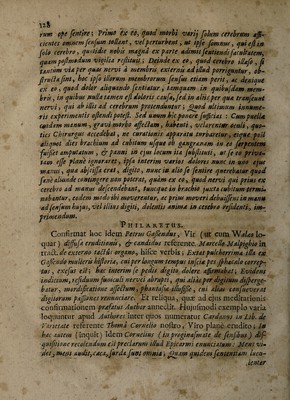 128
rum ope sentire; Primo ex eo, quod morbi varij solum cerebrum affi-
cientes omnem sensum tollant, vel perturbent, ut ipse somnus, qui est in
solo cerebro, quiddie nobis magna ex parte adimit sentiendi facultatem,
quam postmodum vigilia restituit; Deinde ex eo, quod cerebro illaso, si
tantum via per quas nervi à membris externis ad illud porriguntur, ob-
structa sint, hoc ipso illorum membrorum sensus etiam perit, ac denique
ex eo, quod dolor aliquando sentiatur, tamquam in quibusdam mem-
bris, in quibus nulla tamen est doloris causa, sed in alijs per qua transeunt
nervi, qui ab illis ad cerebrum protenduntur; Quod ultimum innume-
ris experimentis ostendi potest. Sed unum hic ponere sufficiat: Cum puella
cuidam manum gravi morbo affectam, habenti, velarentur oculi, quo-
ties Chirurgus accedebat, ne curationis apparatu turbaretur, eique post
aliquot dies brachium ad cubitum usque ob gangranam in eo serpentem
fuisset amputatum, & panni in ejus locum ita substituti, ut se eo priva-
tam esse planè ignoraret, ipsa interim varios dolores nunc in uno ejus
manus, qua abscissa erat, digito, nunc in alio se sentire querebatur quod
sanè aliunde contingere non poterat, quàm ex eo, quod nervi qui prius ex
cerebro ad manus descendebant, tuncque in brachio juxta cubitum termi-
nabantur, eodem modo ibi moverentur, ac prius moveri debuissent in manu
ad sensum hujus, vel illius digiti, dolentis anima in cerebro residenti, im-
primendum.
PHILARETUS.
Confirmat hoc idem Petrus Gassendus, Vir (ut cum Walæo lo-
quar) diffusæ eruditionis, & candidus referente Marcello Malpighio in
tract. de externo tactûs organo, hisce verbis; Extat pulcherrima illa ex
Gassendo muliercis historia, cui per longum tempus inscia pes sphacelo correp-
tus, excisus est: hac interim se pedis digito, dolere affirmabat; Evidens
indicium, residuum fuisculi nervei abrupti, qui aliàs per digitum disperge-
batur, mordicationis affectum, phantasia illusisse, cui illius consueverat
digitorum passiones renunciare. Et reliqua, quæ ad ejus meditationis
confirmationem præfatus Author annectit. Hujusmodi exempla varia
loquuntur apud Authores inter quos numeratur Cardanus in Lib. de
Varietate referente Thoma Cornelio nostro, Viro planè erudito; In
hac autem (inquit) Idem Cornelius (in progimnasmate de sensibus) dis-
quisitione recolendum est praclarum illud Epicermi enunciatum: Mens vi-
det, mens audit, cæca, surda sunt omnia; Quam quidem sententiam locu-
lenter